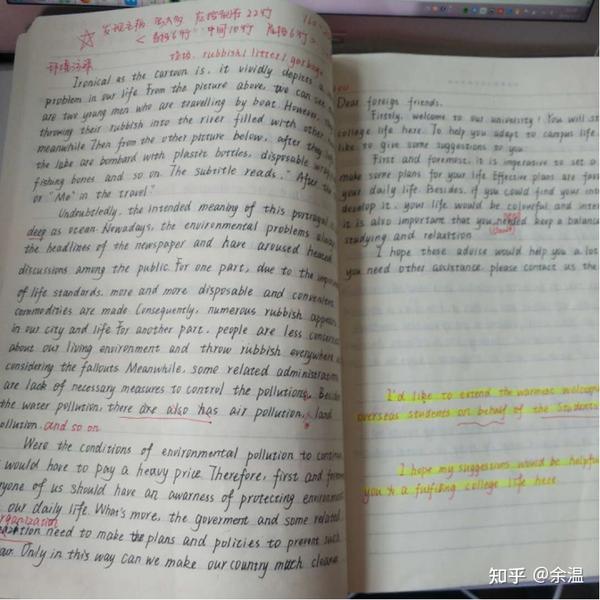 160
首段6行 中间10行 尾段6行
垃圾. rubbish / litter / garbage
环境污染
Ironical as the cartoon is, it vividly depicts a
problem in our life. From the picture above, we can see
are two young men who are travelling by boat. However, they
throwing their rubbish into the river filled with other
meanwhile Then from the other picture below, after they
the lake are bombard with plastic bottles, disposable
fishing bones and so on. The subtitle reads, "After the
or "Me" in the travel"
Undoubtedly, the intended meaning of this portrayal is
deep as ocean. Nowadays, the environmental problems always
the headlines of the newspaper and have aroused heated
discussions among the public. For one part, due to the
of life standards, more and more disposable and convenient
commodities are made Consequently, numerous rubbish appears
in our city and life for another part, people are less
about our living environment and throw rubbish everywhere
considering the fallouts. Meanwhile, some related
are lack of necessary measures to control the pollutions. Besides
the water pollution, there are also has air pollution, land
pollution. and so on
Were the conditions of environmental pollution to
would have to pay a heavy price Therefore, first and
yone of us should have an awarness of protecting
our daily life. What's more, the goverment and some related
organization
need to make the plans and policies to prevent such
Only in this way can we make our country much cleaner
you
Dear foreign friends.
Firstly, welcome to our university! You will
college life here. To help you adapt to campus life.
like to give some suggestions to you
First and foremost, it is imperative to set a
make some plans for your life Effective plans are
your daily life. Besides, if you could find your
develop it, your life would be colourful and
it is also important that you needed keep a balance
studying and relaxtion
I hope these advise would help you a lot
you need other assistance, please contact us the
I'd like to extend the warmest
overseas students on behalf of the students
I hope my suggestions would be helpful
you a fulfilling college life here
知乎 @余温